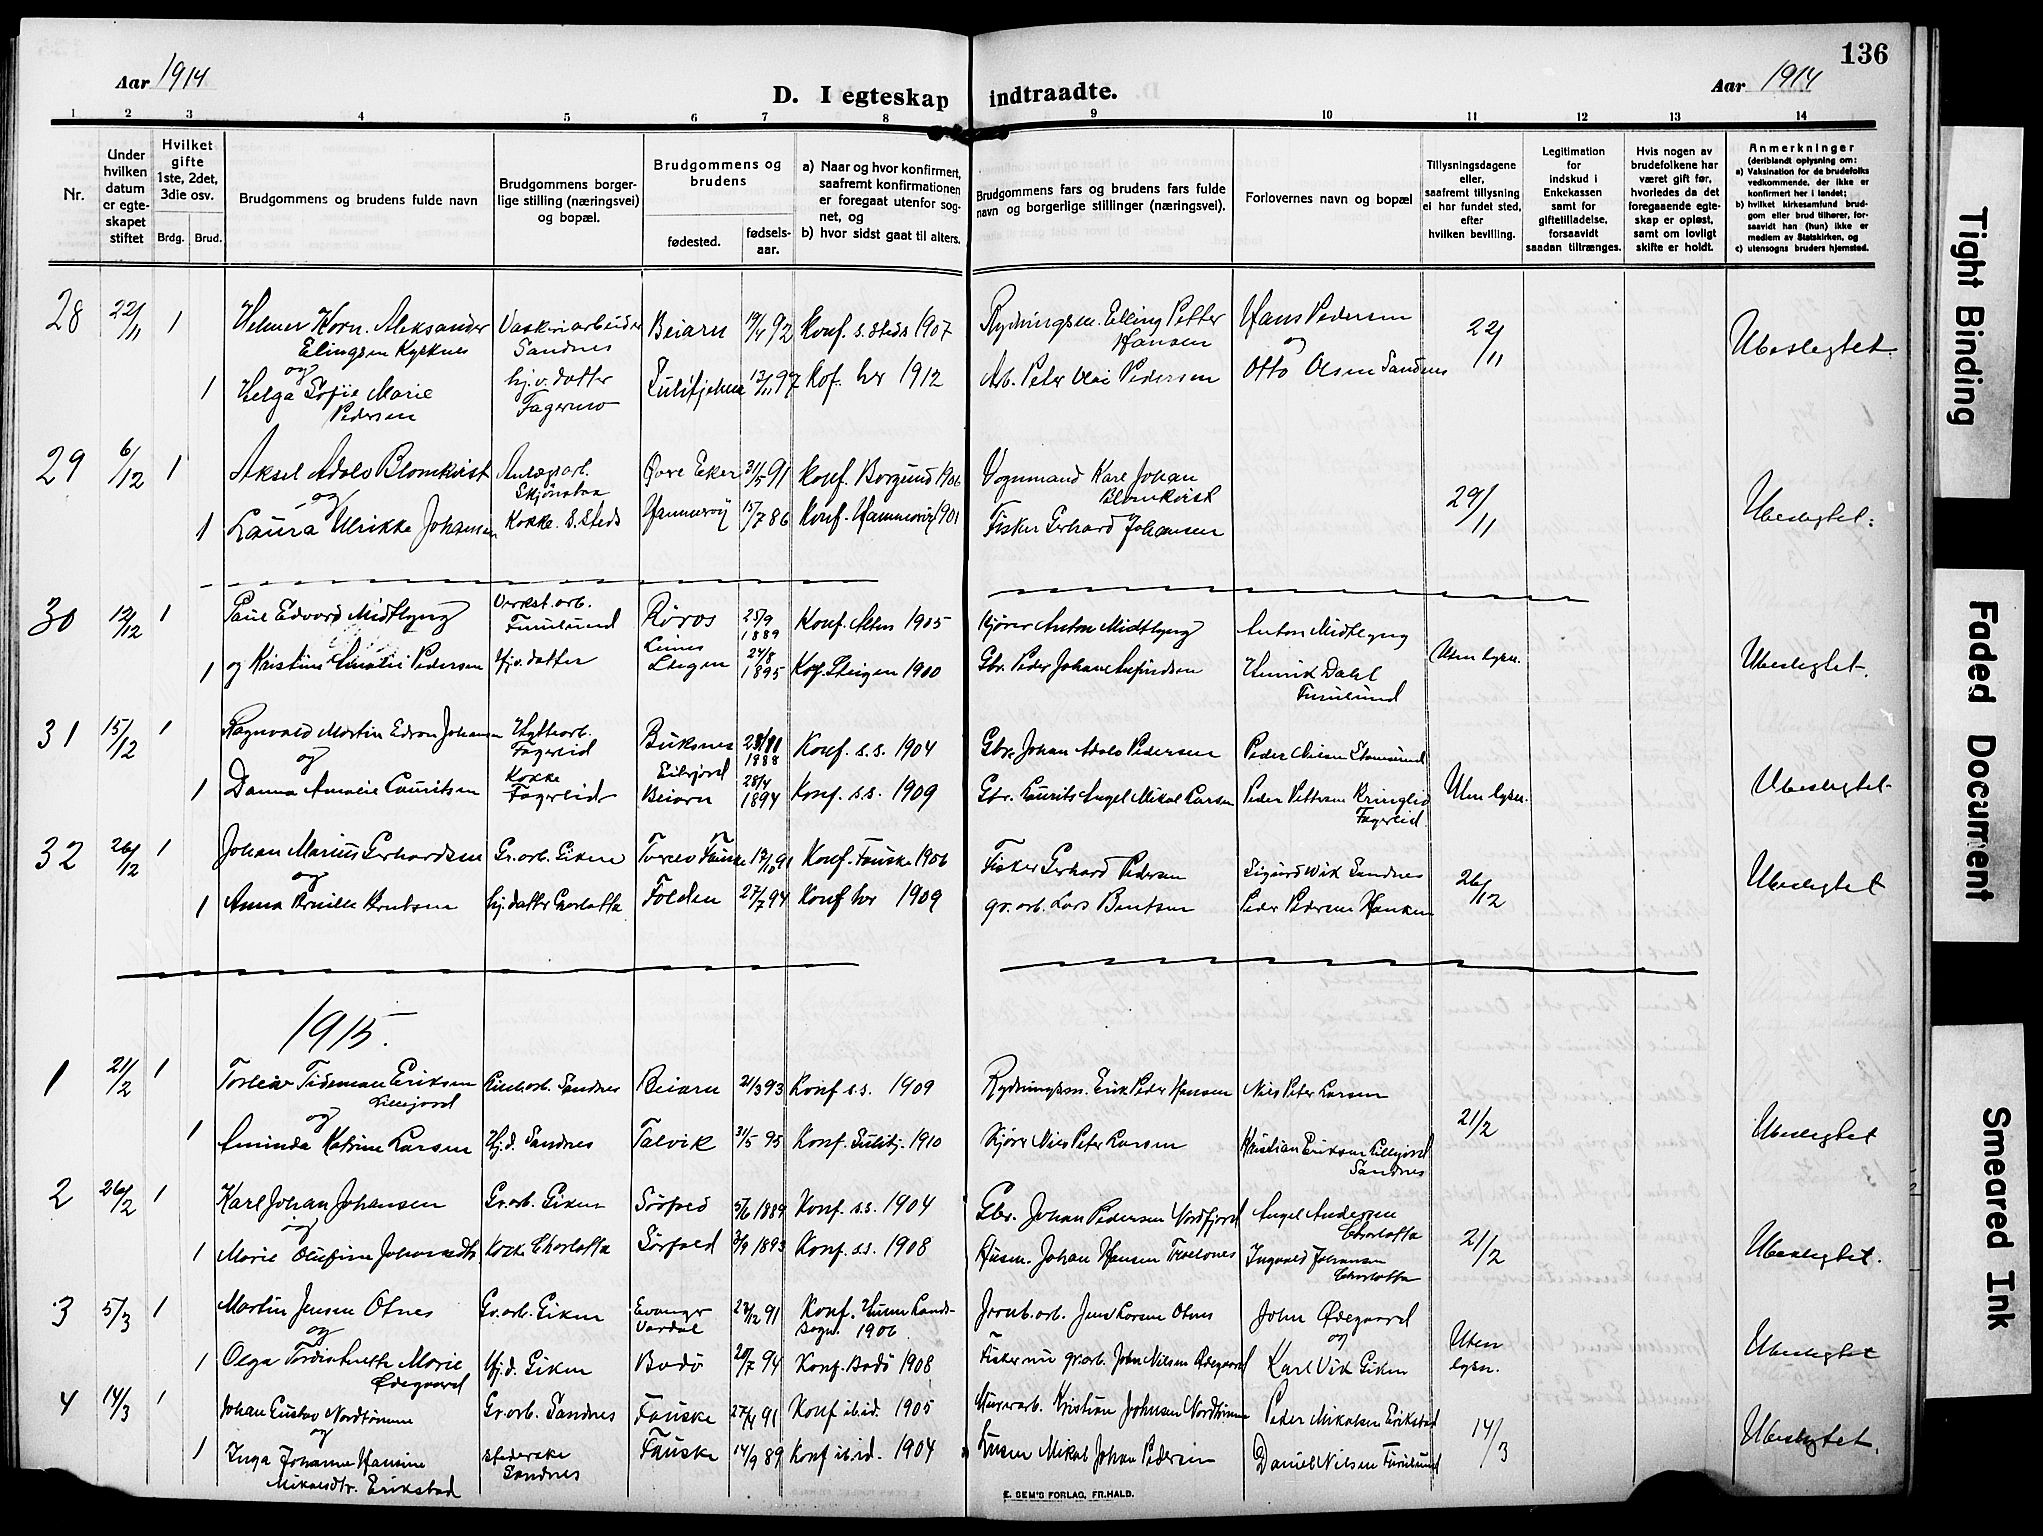 136
Aar 1914
Aar 1914
D. I egteskap indtraadte.
1 2 3 4 5 6 7 8 9 10 11 12 13 14
Nr.
Under hvilken datum er egteskapet stiftet
Hvilket gifte 1ste, 2det, 3die osv.
Brdg. Brud.
Brudgommens og brudens fulde navn
Brudgommens borgerlige stilling (næringsvei) og bopæl.
Brudgommens og brudens
fødested.
fødselsaar.
a) Naar og hvor konfirmert, saafremt konfirmationen er foregaat utenfor sognet, og
b) hvor sidst gaat til alters.
Brudgommens fars og brudens fars fulde navn og borgerlige stillinger (næringsvei).
Forlovernes navn og bopæl
Tillysningsdagene eller, saafremt tillysning ei har fundet sted, efter hvilken bevilling.
Legitimation for indskud i Enkekassen samt for giftetilladelse, forsaavidt saadan tiltrænges.
Hvis nogen av brudefolkene har været gift før, hvorledes da det foregaaende egteskap er opløst, samt om lovligt skifte er holdt.
Anmerkninger
(deriblandt oplysning om:
a) Vaksination for de brudefolks vedkommende, der ikke er konfirmert her i landet;
b) hvilket kirkesamfund brudgom eller brud tilhører, forsaavidt han (hun) ikke er medlem av Statskirken, og
c) utensogns bruders hjemsted.
28 22/11 1 Helmer Korn. Aleksander Vaskeriarbeider Beiarn 92 Konf. s. steds 1907 Rydningsm. Elling Petter Hans Pedersen 22/11 Ubeslegtet.
Elingsen Kyrknes Sandnes Hansen
og og
1 Helga Sofie Marie hj.v. datter Sulitjelma 97 Kof. her 1912 Arb. Peter Olai Pedersen Otto Olsen Sandnes
Pedersen Fagermo
29 6/12 1 Aksel Adolv Blomkvist Anlægsarb. Øvre Eker 31/5 91 Konf. Borgund 1906 Vognmand Karl Johan 29/11 Ubeslegtet.
og Skjønstaa Blomkvist
1 Laura Ulrikke Johansen Kokke. s. steds Hammerøy 15/7 86 Konf. Hammerøy 1901 Fisker Gerhard Johansen
30 12/12 1 Paul Edvard Midtlyng Verkst.arb. Røros 25/9 Konf. Alten 1905 Kjører Anton Midtlyng Anton Midtlyng Uten lysn. Ubeslegtet.
Furulund 1889
1 og Kristine Amalie Pedersen Hjv. datter Steigen 24/8 1895 Kof. Steigen 1900 Gbr. Peder Johan Arfindsen Henrik Dahl
Furulund
31 15/12 1 Ragnvald Martin Edvon Johansen Hytteorb. Buksnes 1888 Konf. s.s. 1904 Gbr. Johan Adolv Pedersen Peder Nilsen Stamsund Uten lysn. Ubeslegtet.
og Fagerlid
1 Danna Amalie Lauritsen Kokke Beiarn 28/4 1894 Konf. s.s. 1909 Gbr. Laurits Angel Mikal Larsen Peder Pettersen Kringlid
Fagerlid Fagerlid
32 26/12 1 Johan Marius Gerhardsen Gr. arb. Giken Fauske 91 Konf. Fauske 1906 Fisker Gerhard Pedersen Sigurd Wik Sandnes 26/12 Ubeslegtet
og
1 Anna Bentsen hj. datter Charlotta Folden 27/7 94 Konf her 1909 gr. arb. Lars Bentsen Peder Pedersen Hanken
1915.
1 21/2 1 Torleiv Tideman Eriksen Sandnes Beiarn 21/3 93 Konf s.s. 1909 Rydningsm. Erik Peder Hansen Nils Peter Larsen 21/2 Ubeslegtet
Lillejord
og
1 Aminda Katrine Larsen Hj.d. Sandnes Talvik 31/5 95 Konf. Sulitj. 1910 Kjører Nils Peter Larsen Kristian Eriksen Lillejord
Sandnes
2 26/2 1 Karl Johan Johansen Gr. orb. Giken Sørfold 5/6 1889 Konf. s.s. 1904 Gbr. Johan Pedersen Nordfjord Angel Andersen 21/2 Ubeslegtet.
og Charlotta
1 Marie Olufine Johansdtr. Kokke Charlotta Sørfold 3/9 1893 Konf. s.s. 1908 Husm. Johan Hansen Ingvald Johansen
Charlotta
3 5/3 1 Martin Jensen Otnes Gr. orb. Giken Evanger 23/12 91 Konf. Lands- Jernb. orb. Jens Larsen Otnes John Ødegaard Uten Ubeslegtet
og Vardal sogn. 1906 og
1 Olga Tordis Anette Marie Hj.d. Giken Bodø 20/7 94 Konf. Bodø 1908 Fisker nu gr.orb. John Nilsen Ødegaard Karl Vik Giken lysn.
Ødegaard
4 14/3 1 Johan Gustav Nordtømme Gr. orb. Sandnes Fauske 27/4 91 Konf ib.id. 1905 Murerarb. Kristian Johnsen Nordtømme Peder Mikalsen Erikstad 14/3 Ubeslegtet.
og
1 Inga Johanne Hansine Fauske 14/9 89 Konf ib.id. 1904 Mikal Johan Pedersen Daniel Nilsen Furulund
Mikalsdtr. Erikstad Sandnes
E. SEM'S FORLAG, FR.HALD.
Tight Binding
Faded Document
Smeared Ink